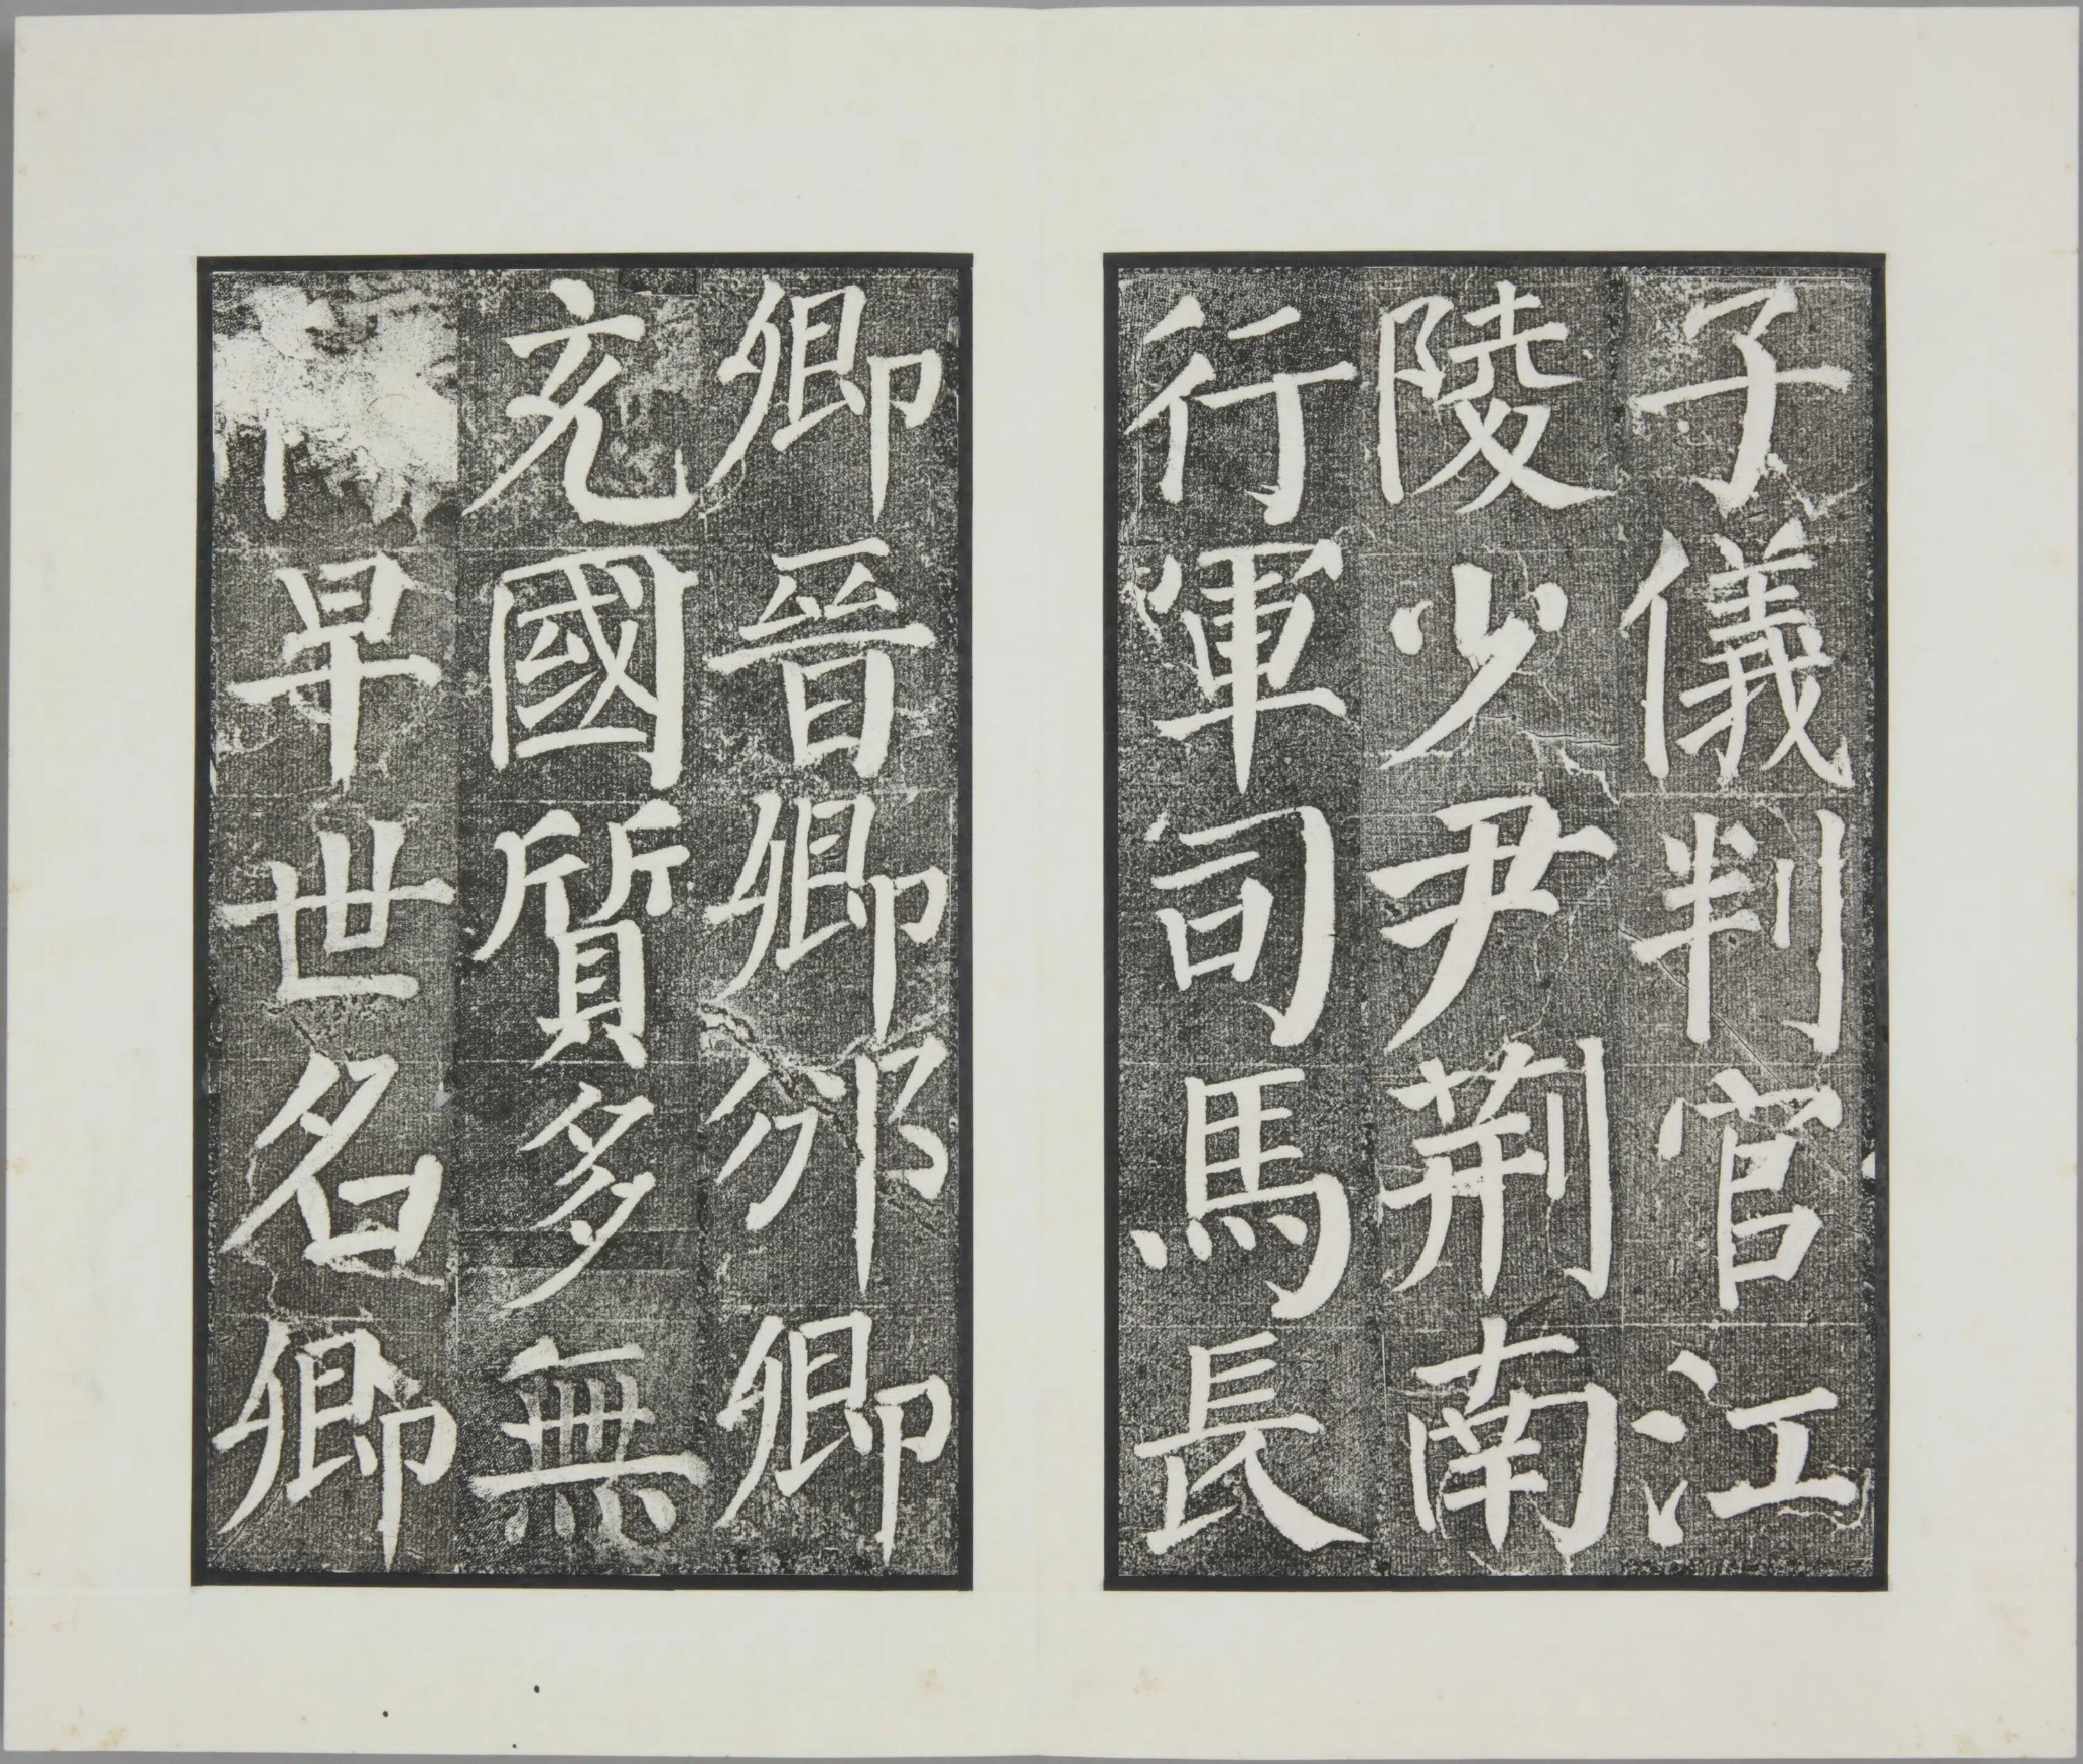 子儀判官江
陵少尹荆南
行軍司馬長
卿晉卿邠卿
充國質多無
早世名卿